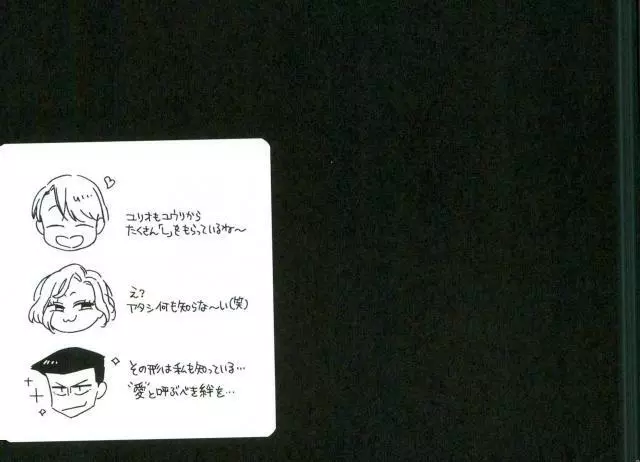 ユリオもユウリから
たくさん「L」をもらっているね〜
え?
アタシ何も知らな〜い(笑)
その形は私も知っている…
“愛”と呼ぶべき絆を…